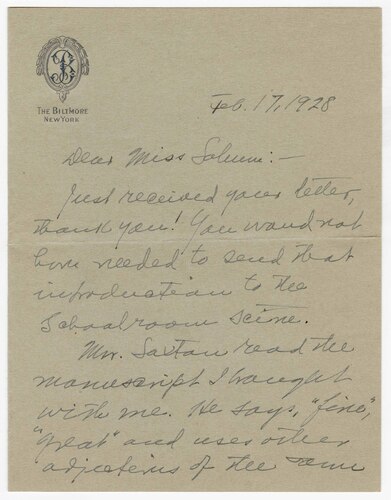 The Biltmore
New York
Feb. 17, 1928
Dear Miss
Just received your letter,
thank you! You would not
have needed to send that
introduction to the
Schoolroom scene.
Mr. Saxton read the
manuscript I brought
with me. He says, "fine",
"great" and uses other
adjectives of the same